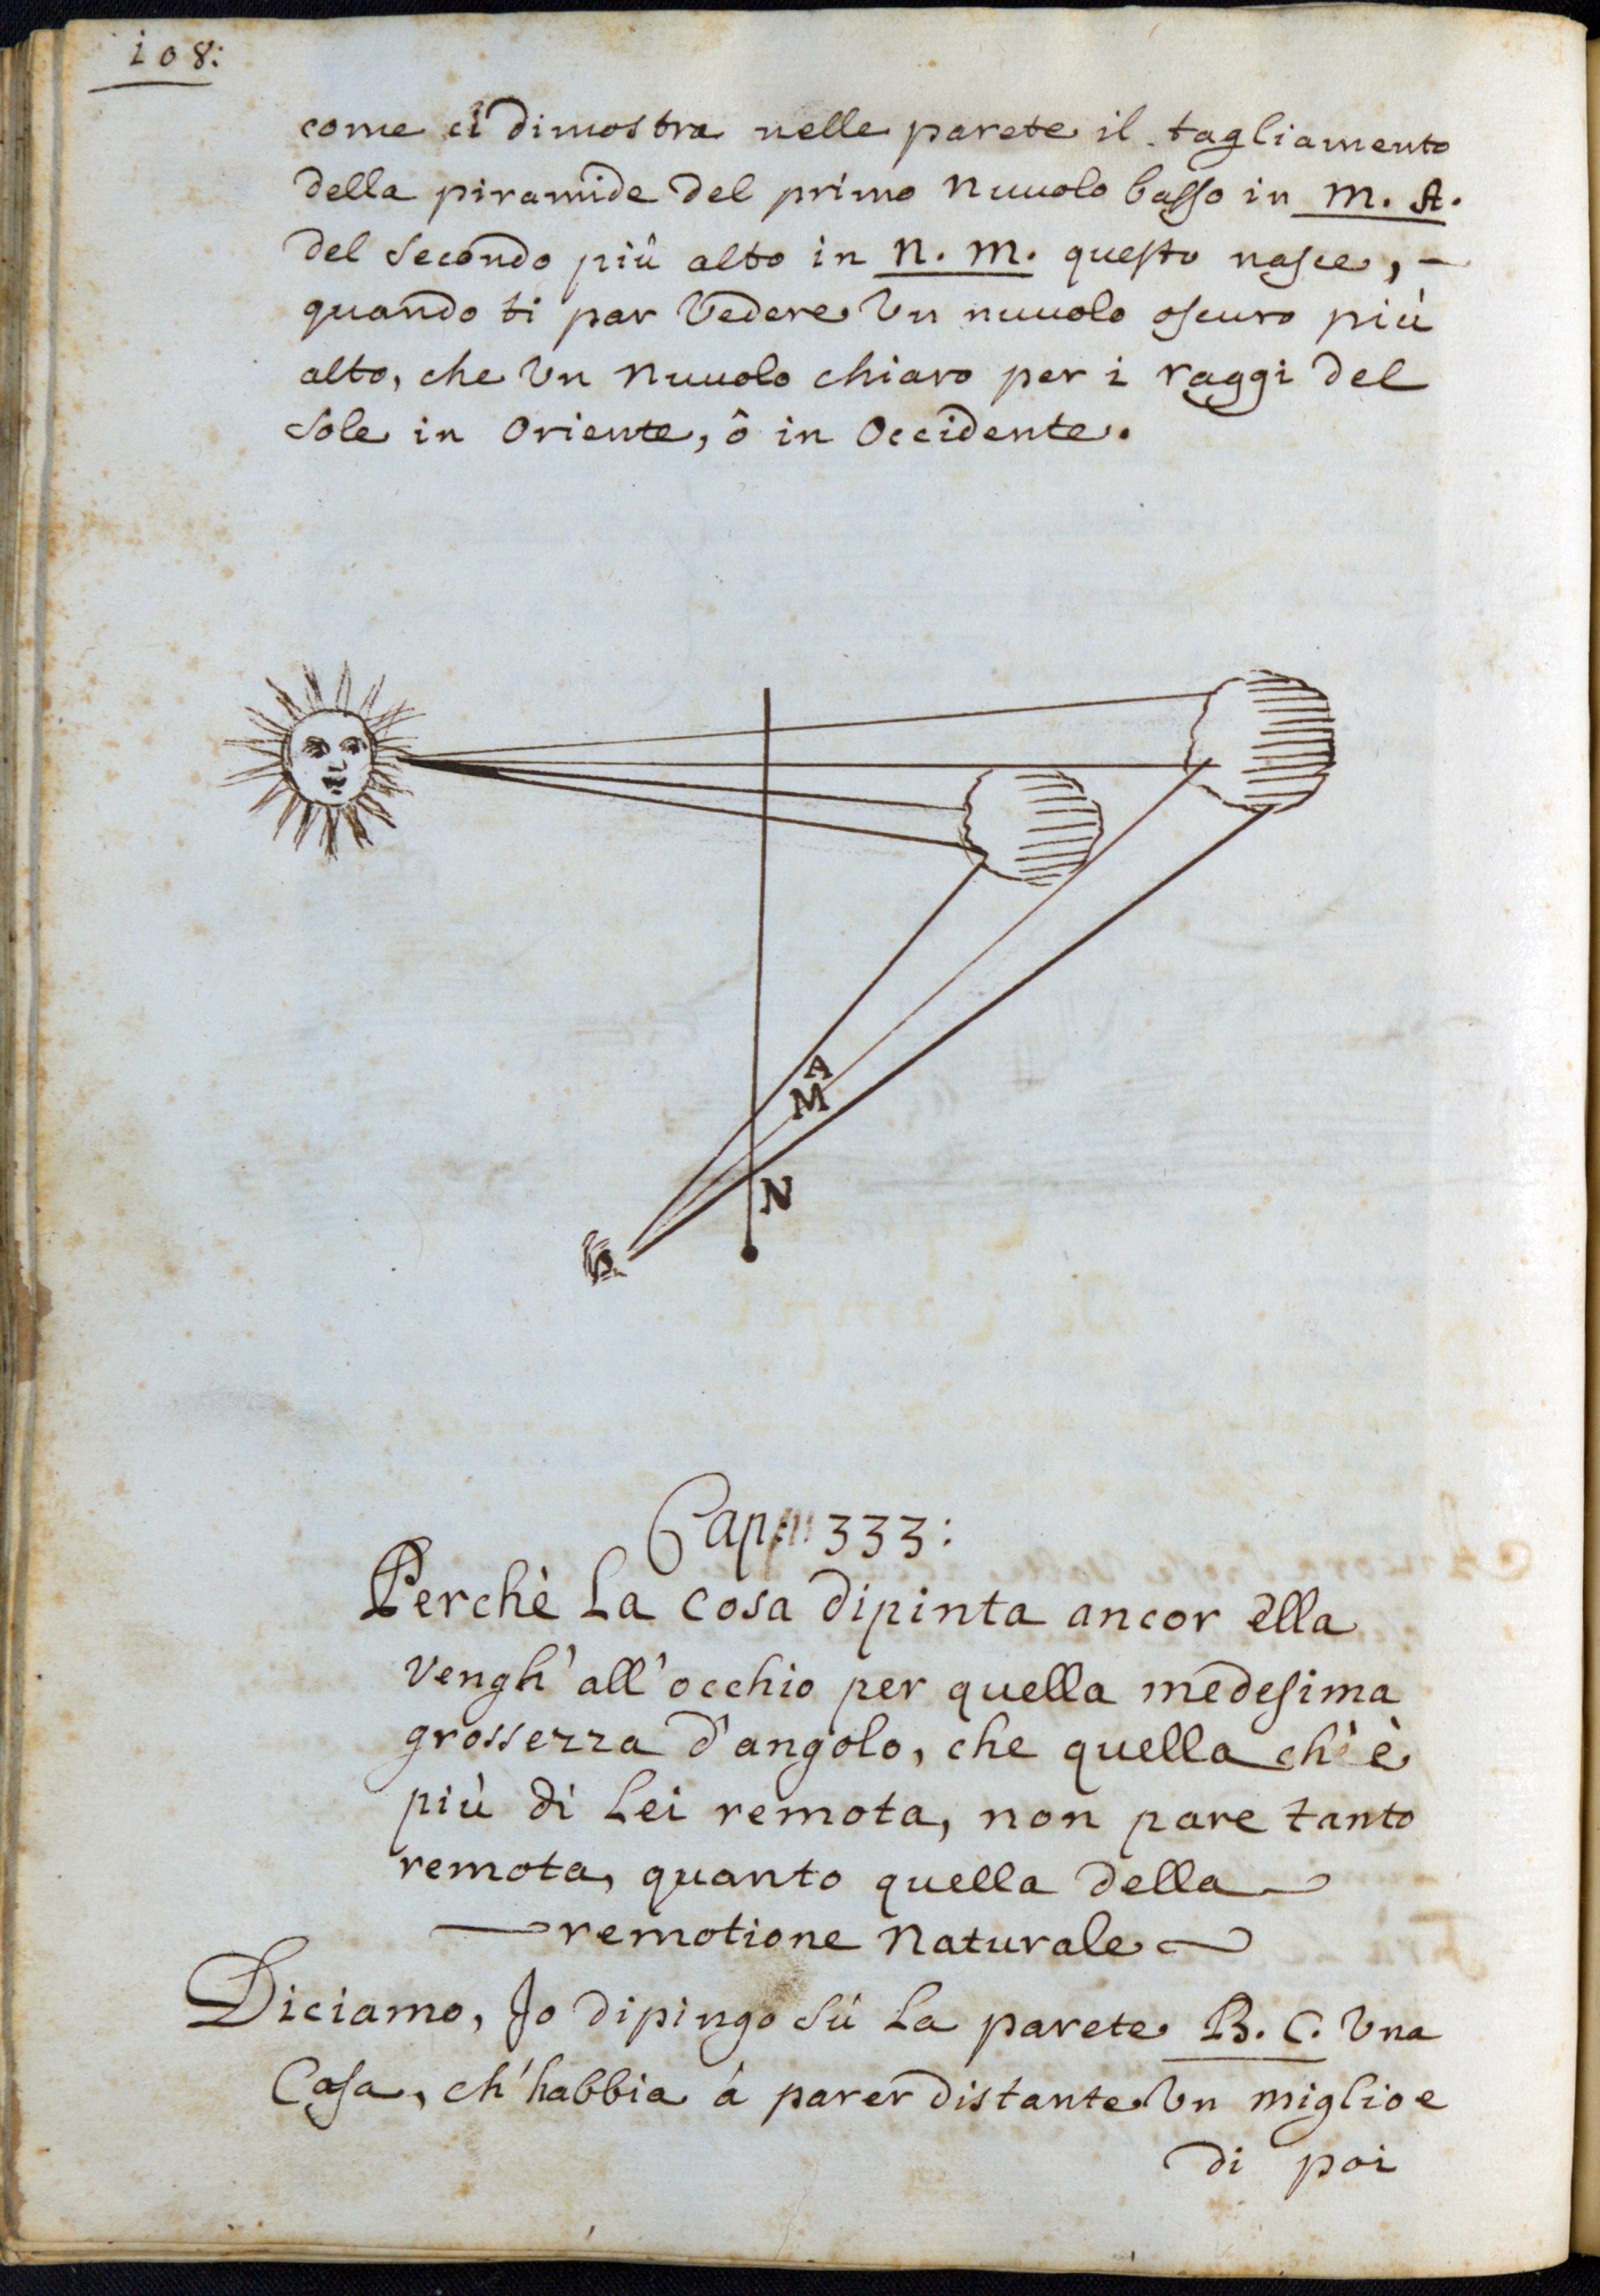 108:
come ci dimostra nelle parete il tagliamento
della piramide del primo nuuolo basso in m. A.
del secondo più alto in n. m. questo nasce, –
quando ti par vedere vn nuuolo oscuro più
alto, che vn nuuolo chiaro per i raggi del
sole in Oriente, ô in Occidente.
A
M
N
Cap. 333:
Perchè la cosa dipinta ancor ella
vengh' all'occhio per quella medesima
grossezza d'angolo, che quella ch' è
più di lei remota, non pare tanto
remota, quanto quella della
remotione naturale
Diciamo, Jo dipingo sù la parete B. C. vna
Casa, ch'habbia à parer distante vn miglio e
di poi